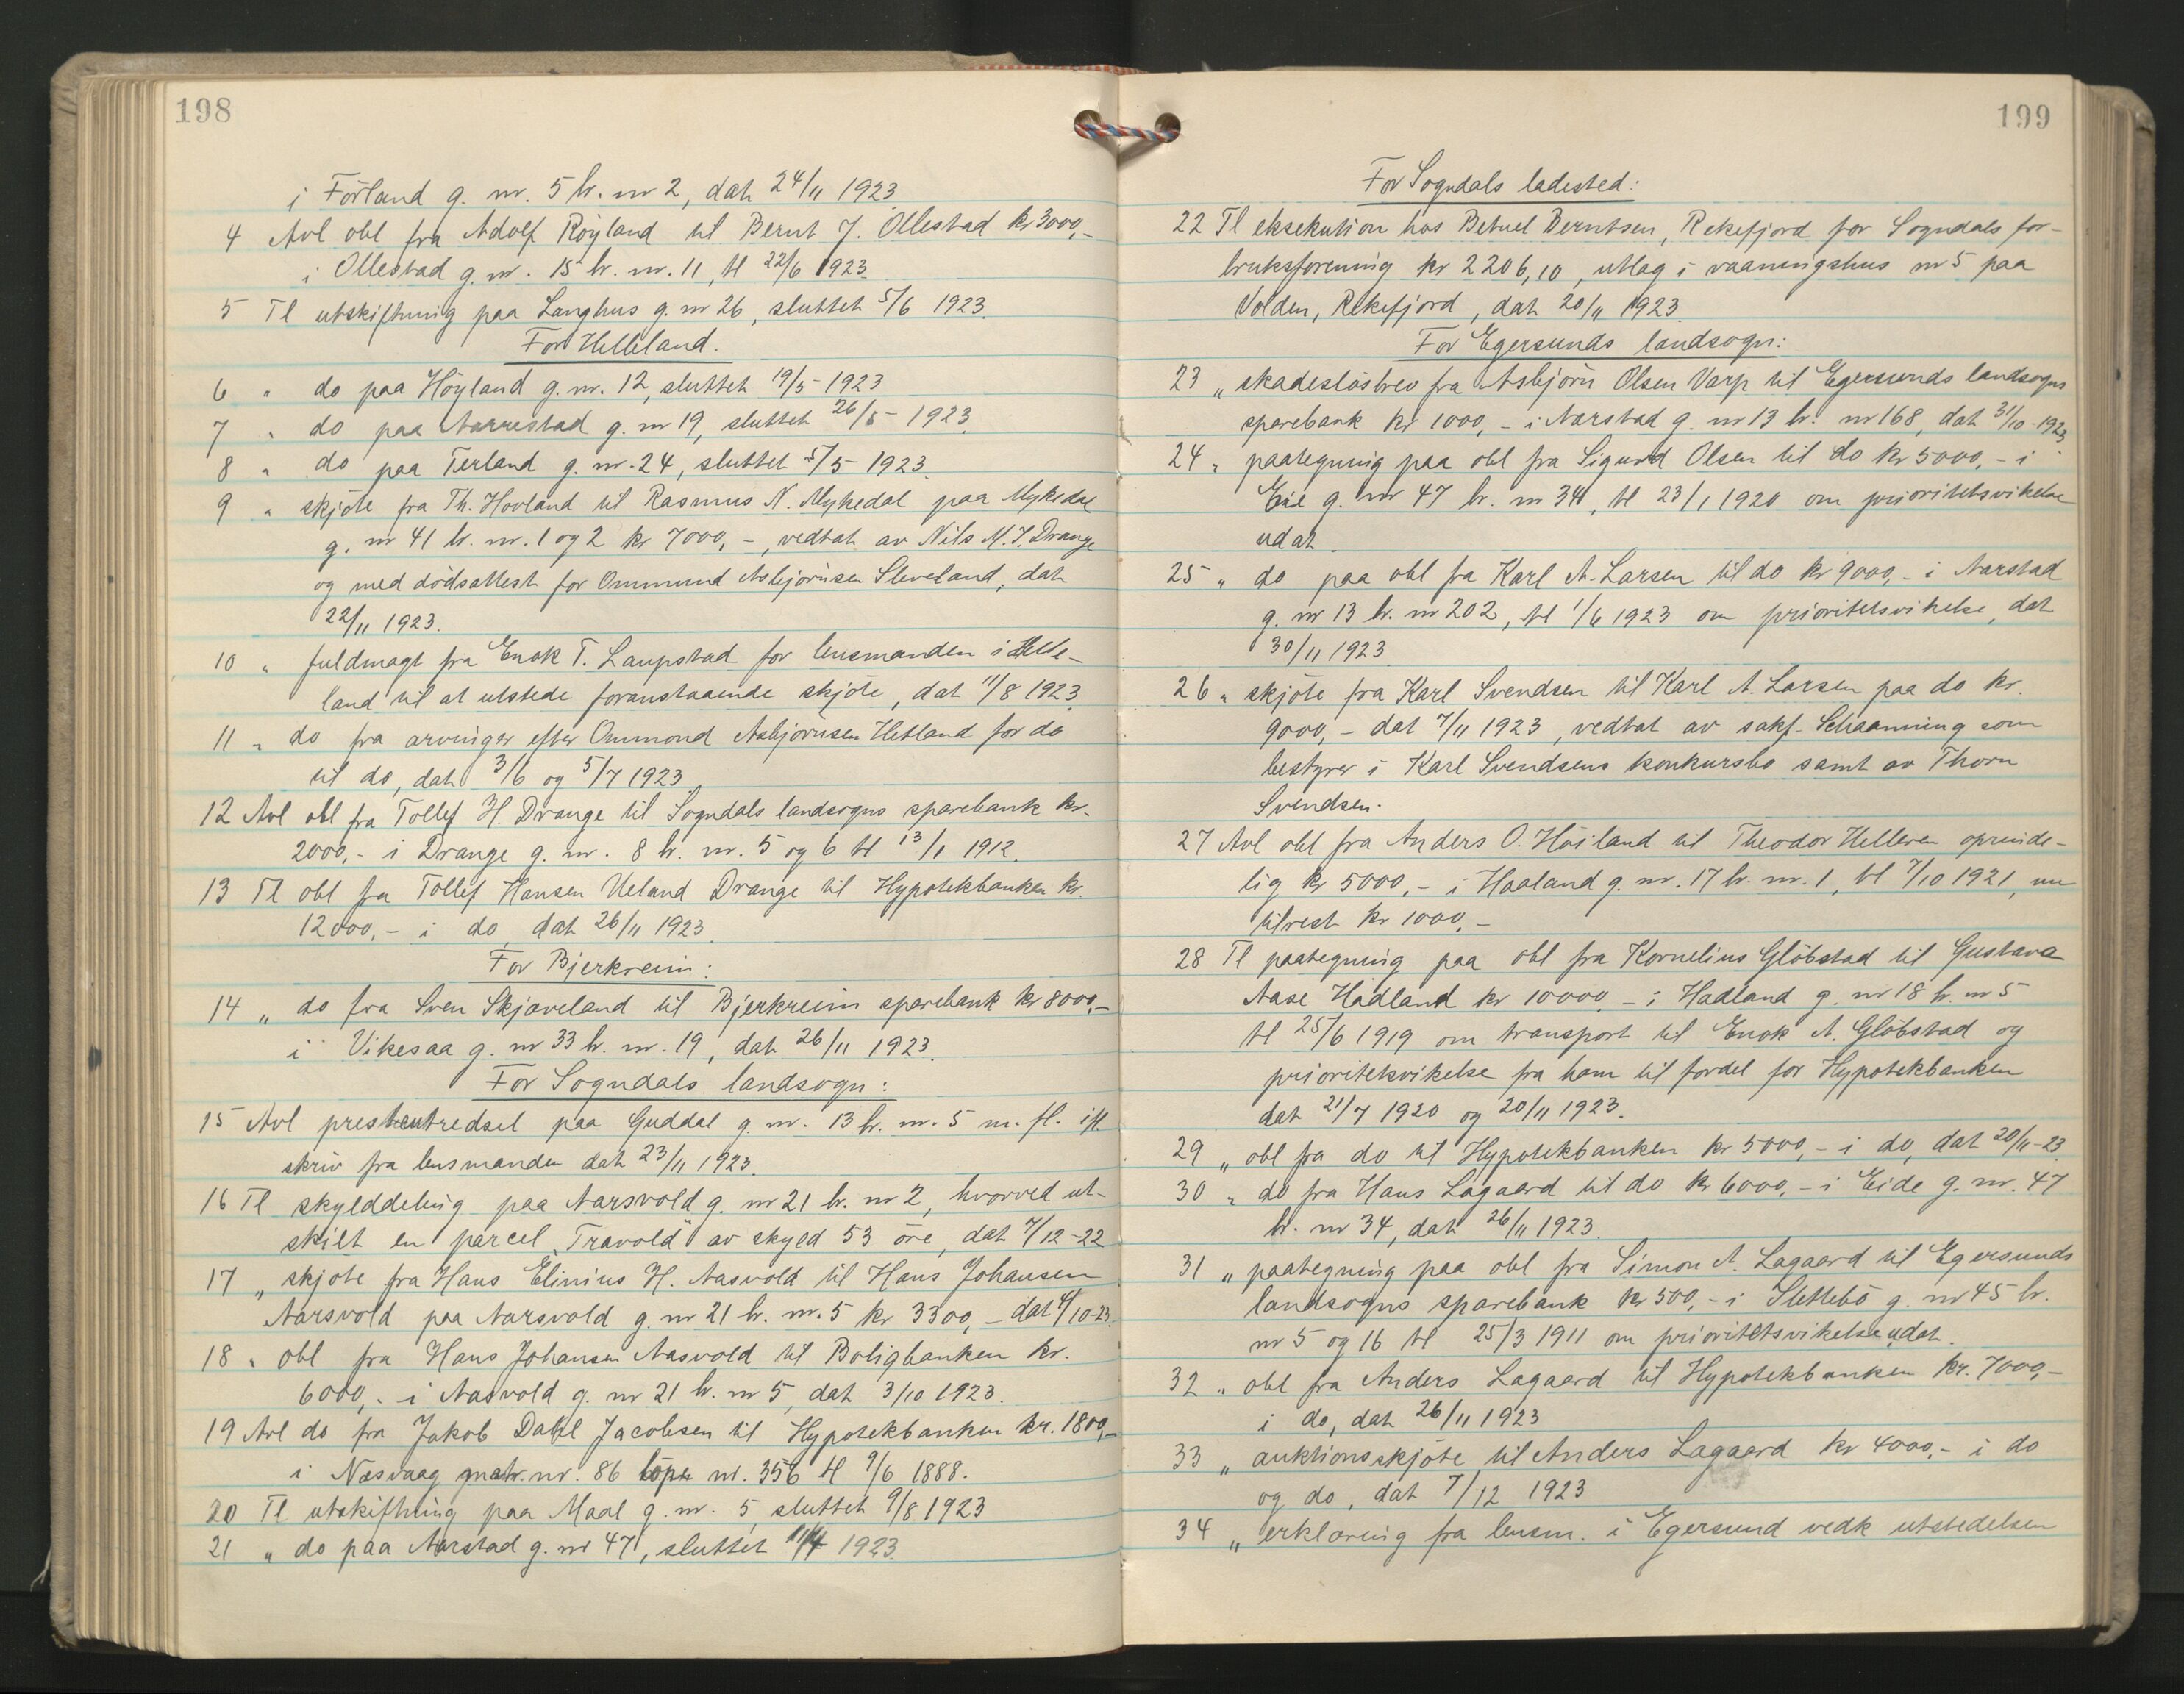 198
i Förland g. nr. 5 br. nr 2, dat 24/11 1923.
4 Avl obl fra Adolf Röyland til Bernt J. Ollestad kr 3000,-
i Ollestad g. nr. 15 br. nr. 11, tl 22/6 1923.
5 Tl utskiftning paa Langhus g. nr 26, sluttet 5/6 1923.
For Helleland.
6 " do paa Höyland g. nr. 12, sluttet 19/5 - 1923
7 " do paa Aarrestad g. nr 19, sluttet 26/5 - 1923.
8 " do paa Terland g. nr. 24, sluttet 5/5 - 1923.
9 " skjöte fra Th. Hovland til Rasmus N. Mykedal paa Mykedal
g. nr 41 br. nr. 1 og 2 kr 7000,-, vedtat av Nils M. J. Drange
og med dödsattest for Ommund Asbjörnsen Sleveland, dat
22/11 1923.
10 " fuldmagt fra Enok T. Laupstad for lensmanden i Helle-
land til at utstede foranstaaende skjöte, dat 11/8 1923.
11 " do fra arvinger efter Ommond Asbjörnsen Hetland for do
til do, dat 3/6 og 5/7 1923
12 Avl obl fra Tollef H. Drange til Sogndals landsogns sparebank kr.
2000,- i Drange g. nr. 8 br. nr. 5 og 6 tl 13/1 1912.
13 Tl obl fra Tollef Hansen Ueland Drange til Hypotekbanken kr.
12000,- i do, dat 26/11 1923.
For Bjerkreim:
14 " do fra Sven Skjæveland til Bjerkreim sparebank kr 8000,-
i Vikesaa g. nr 33 br. nr. 19, dat 26/11 1923.
For Sogndals landsogn:
15 Avl presteutredsel paa Guddal g. nr. 13 br. nr. 5 m. fl. ifl.
skriv fra lensmanden dat 23/11 1923.
16 Tl skylddeling paa Aarsvold g. nr 21 br. nr 2, hvorved ut-
skilt en parcel "Travold" av skyld 53 öre, dat 7/12-22
17 " skjöte fra Hans Elinius H. Aasvold til Hans Johansen
Aarsvold paa Aarsvold g. nr 21 br. nr. 5 kr 3300,- dat 4/10-23.
18 " obl fra Hans Johansen Aasvold til Boligbanken kr.
6000,- i Aasvold g. nr 21 br. nr 5, dat 3/10 1923.
19 Avl do fra Jakob Dahl Jacobsen til Hypotekbanken kr. 1800,-
i Nesvaag matr. nr. 86 löpe nr. 356 tl 9/6 1888.
20 Tl utskiftning paa Maal g. nr. 5, sluttet 9/8 1923
21 " do paa Aarstad g. nr 47, sluttet 11/4 1923.
199
For Sogndals ladested:
22 Tl eksekution hos Betuel Berntsen, Rekefjord for Sogndals for-
bruksforening kr 2206,10, utlag i vaaningshus nr 5 paa
Volden, Rekefjord, dat 20/11 1923.
For Egersunds landsogn:
23 " skadeslösbrev fra Asbjörn Olsen Varp til Egersunds landsogns
sparebank kr 1000,- i Aarstad g. nr 13 br. nr 168, dat 31/10-1923
24 " paategning paa obl fra Sigurd Olsen til do kr 5000,- i
Eie g. nr 47 br. nr 34, tl 23/1 1920 om prioritetsvikelse
udat.
25 " do paa obl fra Karl A. Larsen til do kr 9000,- i Aarstad
g. nr 13 br. nr 202, tl 1/6 1923 om prioritetsvikelse, dat
30/11 1923.
26 " skjöte fra Karl Svendsen til Karl A. Larsen paa do kr.
9000,- dat 7/11 1923, vedtat av sakf. Schaanning som
bestyrer i Karl Svendsens konkursbo samt av Thora
Svendsen.
27 Avl obl fra Anders O. Höiland til Theodor Helleren oprinde-
lig kr 5000,- i Haaland g. nr. 17 br. nr. 1, tl 7/10 1921, nu
tilrest kr 1000,-
28 Tl paategning paa obl fra Kornelius Glöbstad til Gustava
Aase Hadland kr 10000,- i Hadland g. nr 18 br. nr 5
tl 25/6 1919 om transport til Enok A. Glöbstad og
prioritetsvikelse fra ham til fordel for Hypotekbanken
dat 21/7 1920 og 20/11 1923.
29 " obl fra do til Hypotekbanken kr 5000,- i do, dat 20/11-23.
30 " do fra Hans Lagaard til do kr 6000,- i Eide g. nr. 47
br. nr 34, dat 26/11 1923.
31 " paategning paa obl fra Simon A. Lagaard til Egersunds
landsogns sparebank kr 500,- i Slettebö g. nr 45 br.
nr 5 og 16 tl 25/3 1911 om prioritetsvikelse, udat.
32 " obl fra Anders Lagaard til Hypotekbanken kr. 7000,-
i do, dat 26/11 1923
33 " auktionsskjöte til Anders Lagaard kr 4000,- i do
og do, dat 7/12 1923
34 " erklæring fra lensm. i Egersund vedk utstedelsen